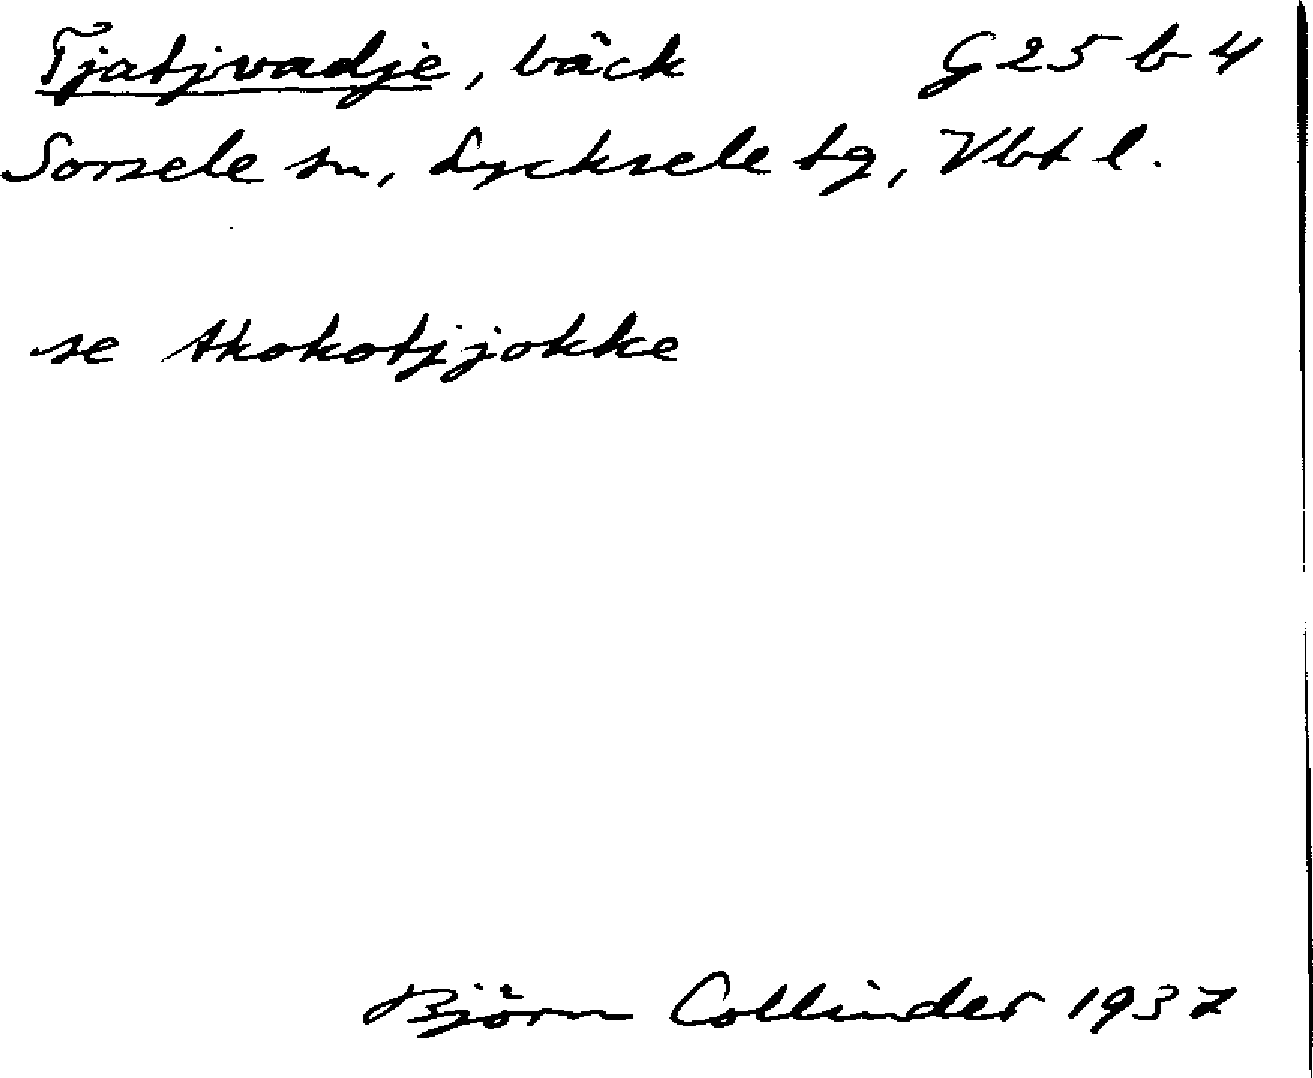 Tjatjvadje, bäck G 25 b 4
Sorsele sn, Lycksele tg, Vbt l.
se Akokotjjokke
Björn Collinder 1937